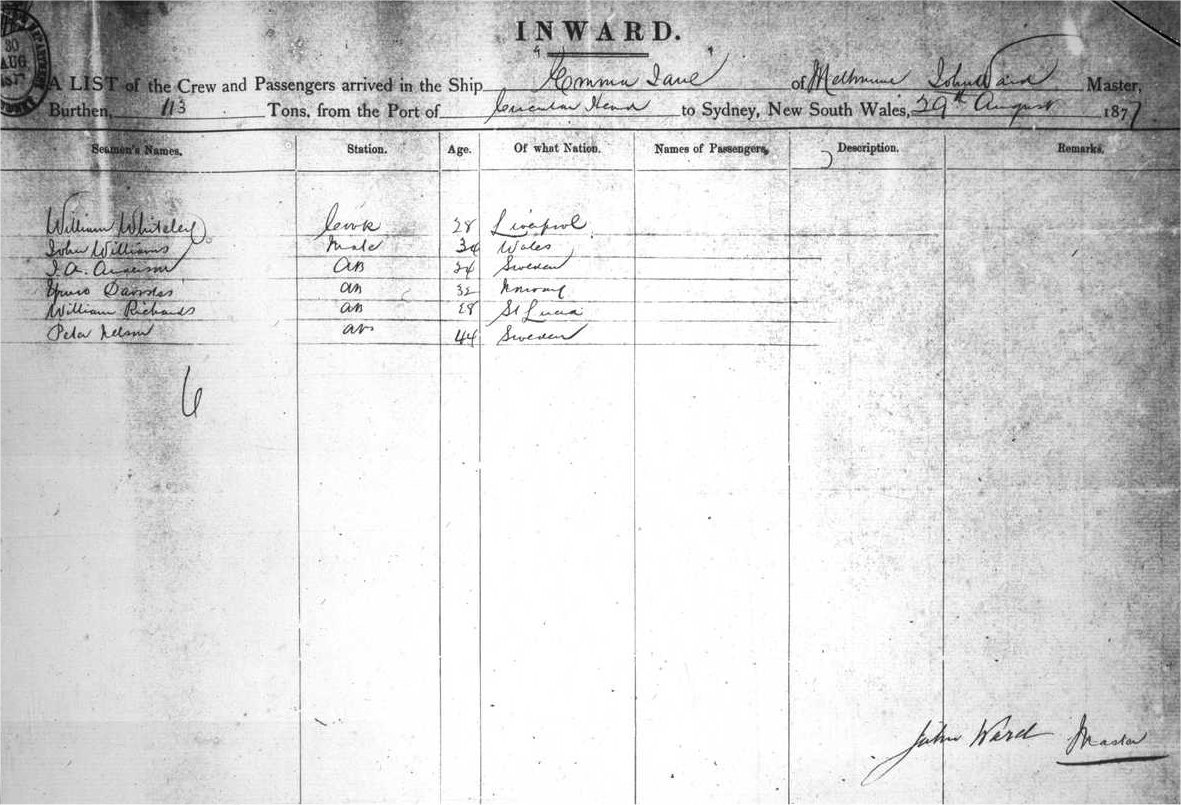 30
AUG
187
INWARD.
A LIST of the Crew and Passengers arrived in the Ship "Emma Jane" of Melbourne John Ward Master,
Burthen, 113 Tons, from the Port of Circular Head to Sydney, New South Wales, 29th August 1877
Seamen's Names. Station. Age. Of what Nation. Names of Passengers. Description. Remarks.
William Whiteley Cook 28 Liverpool
John Williams Mate 34 Wales
J. A. Anderson AB 24 Sweden
AB 32 Norway
William Richards AB 28 St Lucia
Peter Nelson AB 44 Sweden
6
John Ward Master